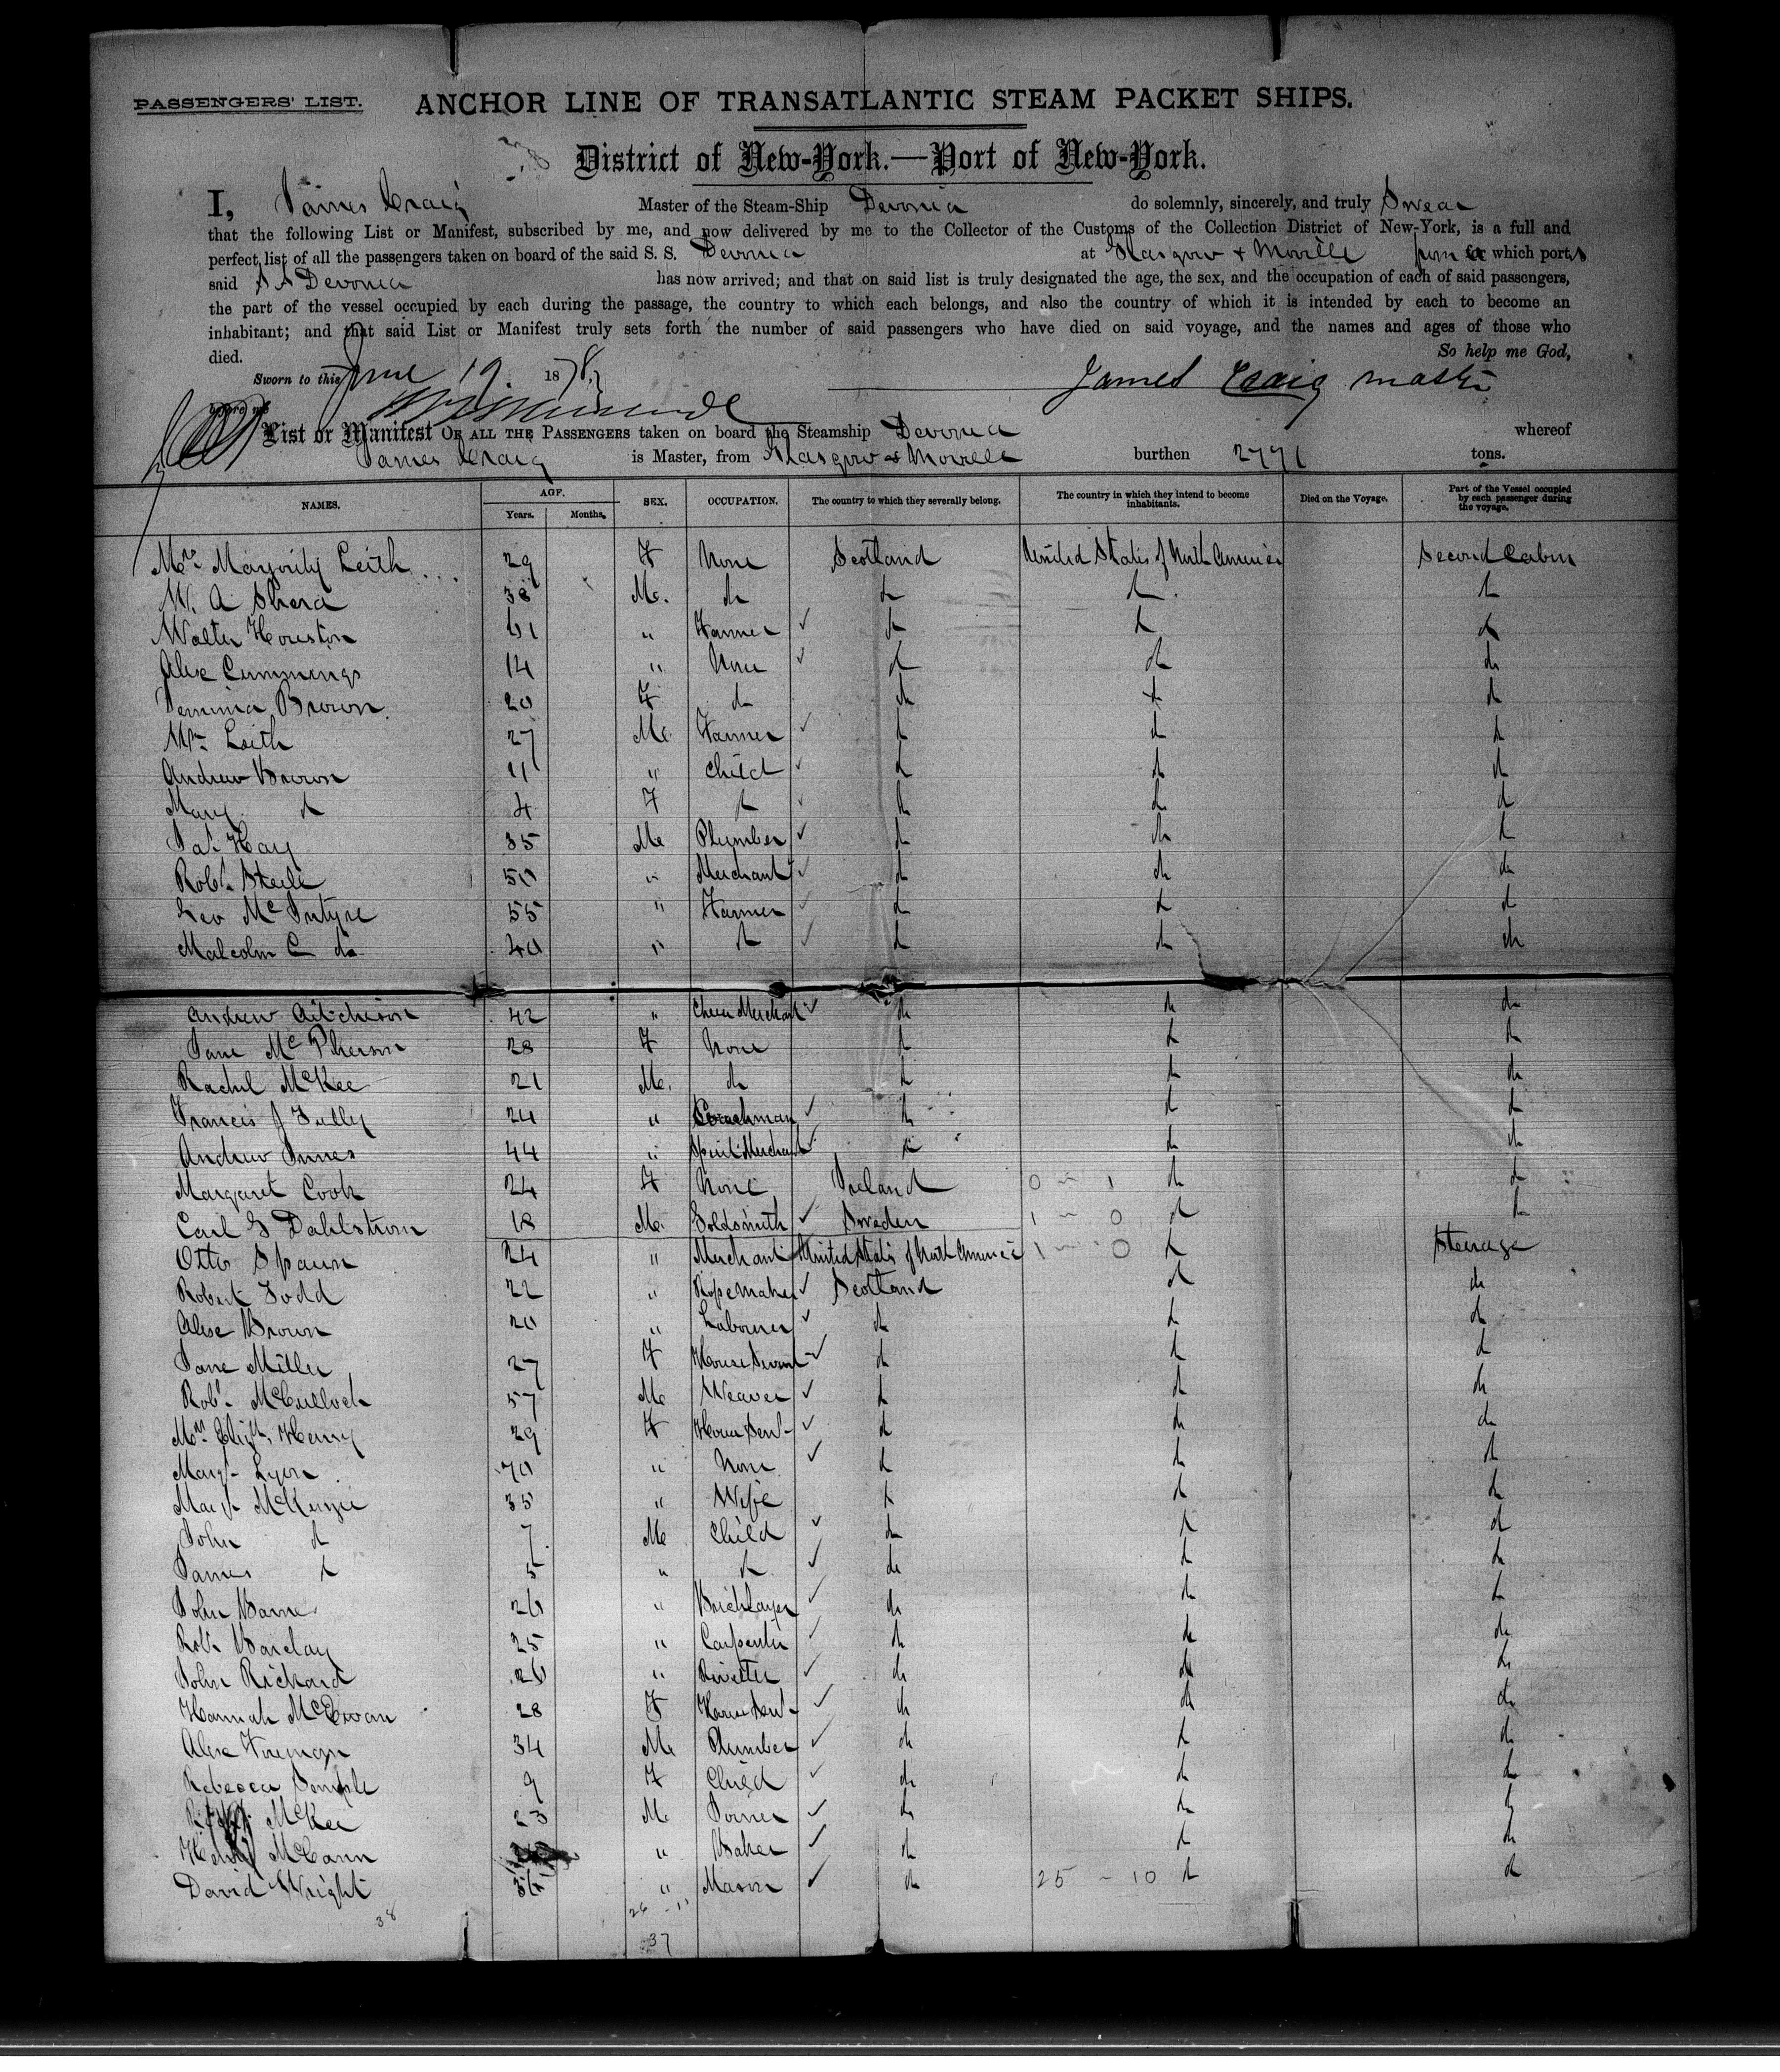 PASSENGERS' LIST. ANCHOR LINE OF TRANSATLANTIC STEAM PACKET SHIPS.
District of New-York.—Port of New-York.
I, James Craig Master of the Steam-Ship Devonia do solemnly, sincerely, and truly Swear
that the following List or Manifest, subscribed by me, and now delivered by me to the Collector of the Customs of the Collection District of New-York, is a full and
perfect list of all the passengers taken on board of the said S. S. Devonia at Glasgow & Moville from which ports
said S S Devonia has now arrived; and that on said list is truly designated the age, the sex, and the occupation of each of said passengers,
the part of the vessel occupied by each during the passage, the country to which each belongs, and also the country of which it is intended by each to become an
inhabitant; and that said List or Manifest truly sets forth the number of said passengers who have died on said voyage, and the names and ages of those who
died. So help me God,
Sworn to this June 19 1878, James Craig master
before me
List or Manifest OF ALL THE PASSENGERS taken on board the Steamship Devonia whereof
James Craig is Master, from Glasgow & Moville burthen 2771 tons.
NAMES. AGE. Years. Months. SEX. OCCUPATION. The country to which they severally belong. The country in which they intend to become inhabitants. Died on the Voyage. Part of the Vessel occupied by each passenger during the voyage.
Mrs Leith 29 F None Scotland United States of North America Second Cabin
W. A. Shera 38 Me. do do do do
Walter Houston 61 " Farmer do do do
Alex Cummings 14 " None do do do
Jemima Brown 20 F do do do do
Wm Leith 27 Me. Farmer do do do
Andrew Brown 11 " Child do do do
Mary do 4 F do do do do
Jas. Hay 35 Me Plumber do do do
Robt. Steele 50 " Merchant do do do
Geo McIntyre 55 " Farmer do do do
Malcolm C do 40 " do do do do
Andrew Aitchison 42 " Cheese Merchant do do do
Jane McPherson 28 F None do do do
Rachel McKee 21 Me. do do do do
Francis J Tully 24 " Coachman do do do
Andrew Innes 44 " Spirit Merchant do do do
Margaret Cook 24 F None Ireland 0 - 1 do do
Carl G Dahlstrom 18 Me. Goldsmith Sweden 1 - 0 do do
Otto Spaun 24 " Merchant United States of North America 1 - 0 do Steerage
Robert Todd 22 " Ropemaker Scotland do do
Alex Brown 20 " Labourer do do do
Jane Miller 27 F House Servant do do do
Robt. McCulloch 57 Me Weaver do do do
Mrs Elizth Henry 29 F House Sert do do do
Margt Lyon 70 " None do do do
Margt McKenzie 35 " Wife do do do
John do 7 Me Child do do do
James do 5 " do do do do
John Barne 26 " Bricklayer do do do
Robt. Barclay 25 " Carpenter do do do
John Rickard 26 " Rivetter do do do
Hannah McEwan 28 F House Sert do do do
Alex 34 Me Plumber do do do
Rebecca Semple 9 F Child do do do
McKee 23 Me Joiner do do do
McCann " Baker do do do
David Wright 36 " Mason do 25 - 10 do do
38 26 - 11
37